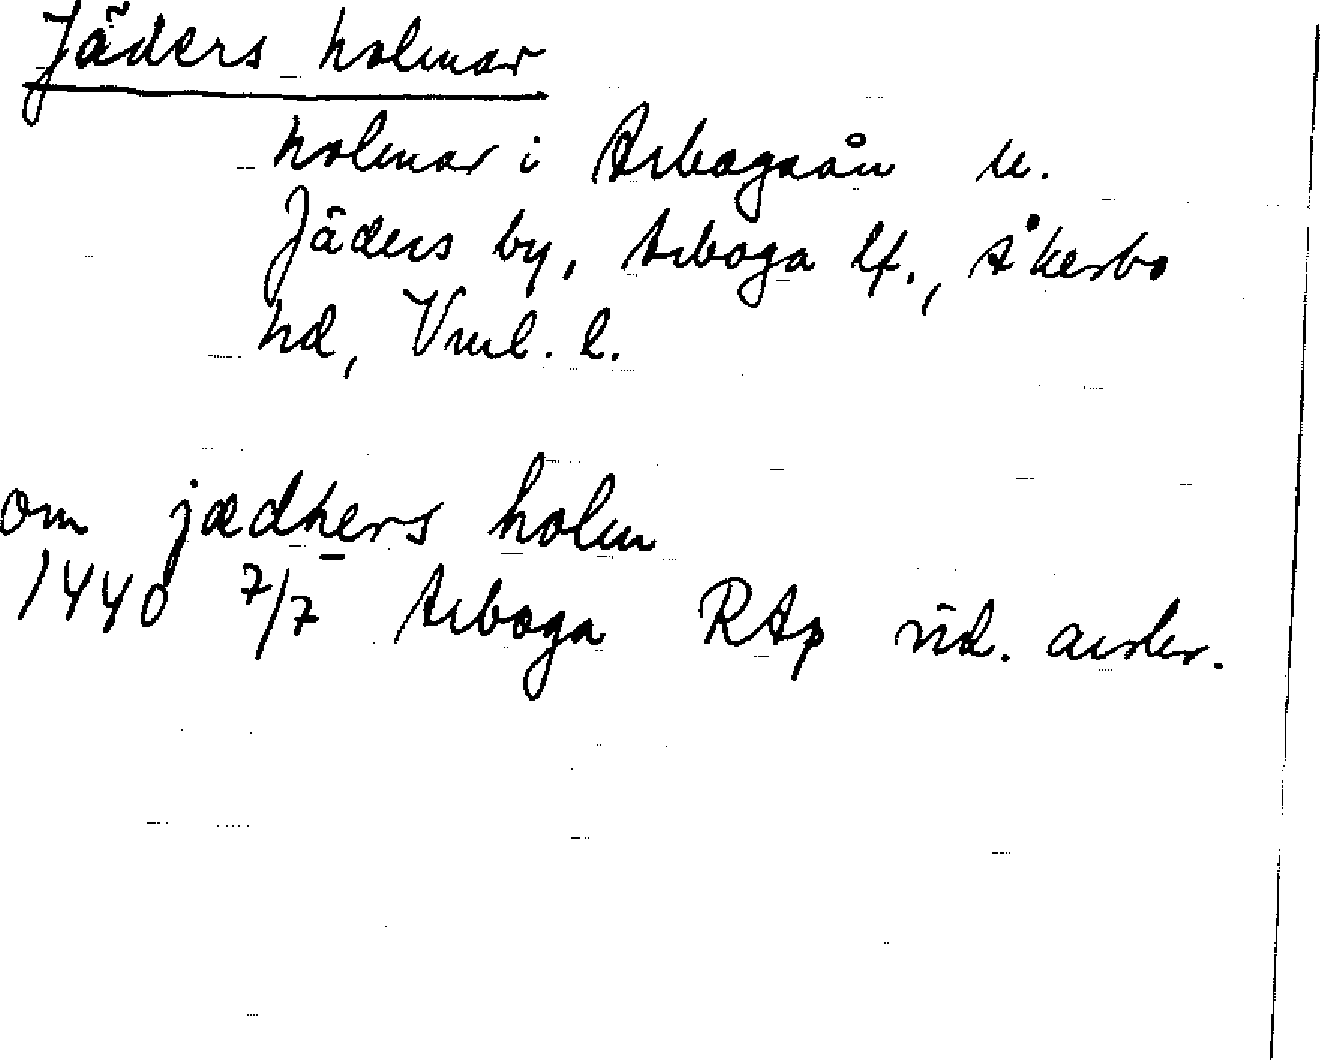 Jäders holmar
holmar i Arbogaån u.
Jäders by, Arboga lf., Åkerbo
hd, Vml. l.
om jædhers holm
1440 7/7 Arboga RAp vid. avskr.